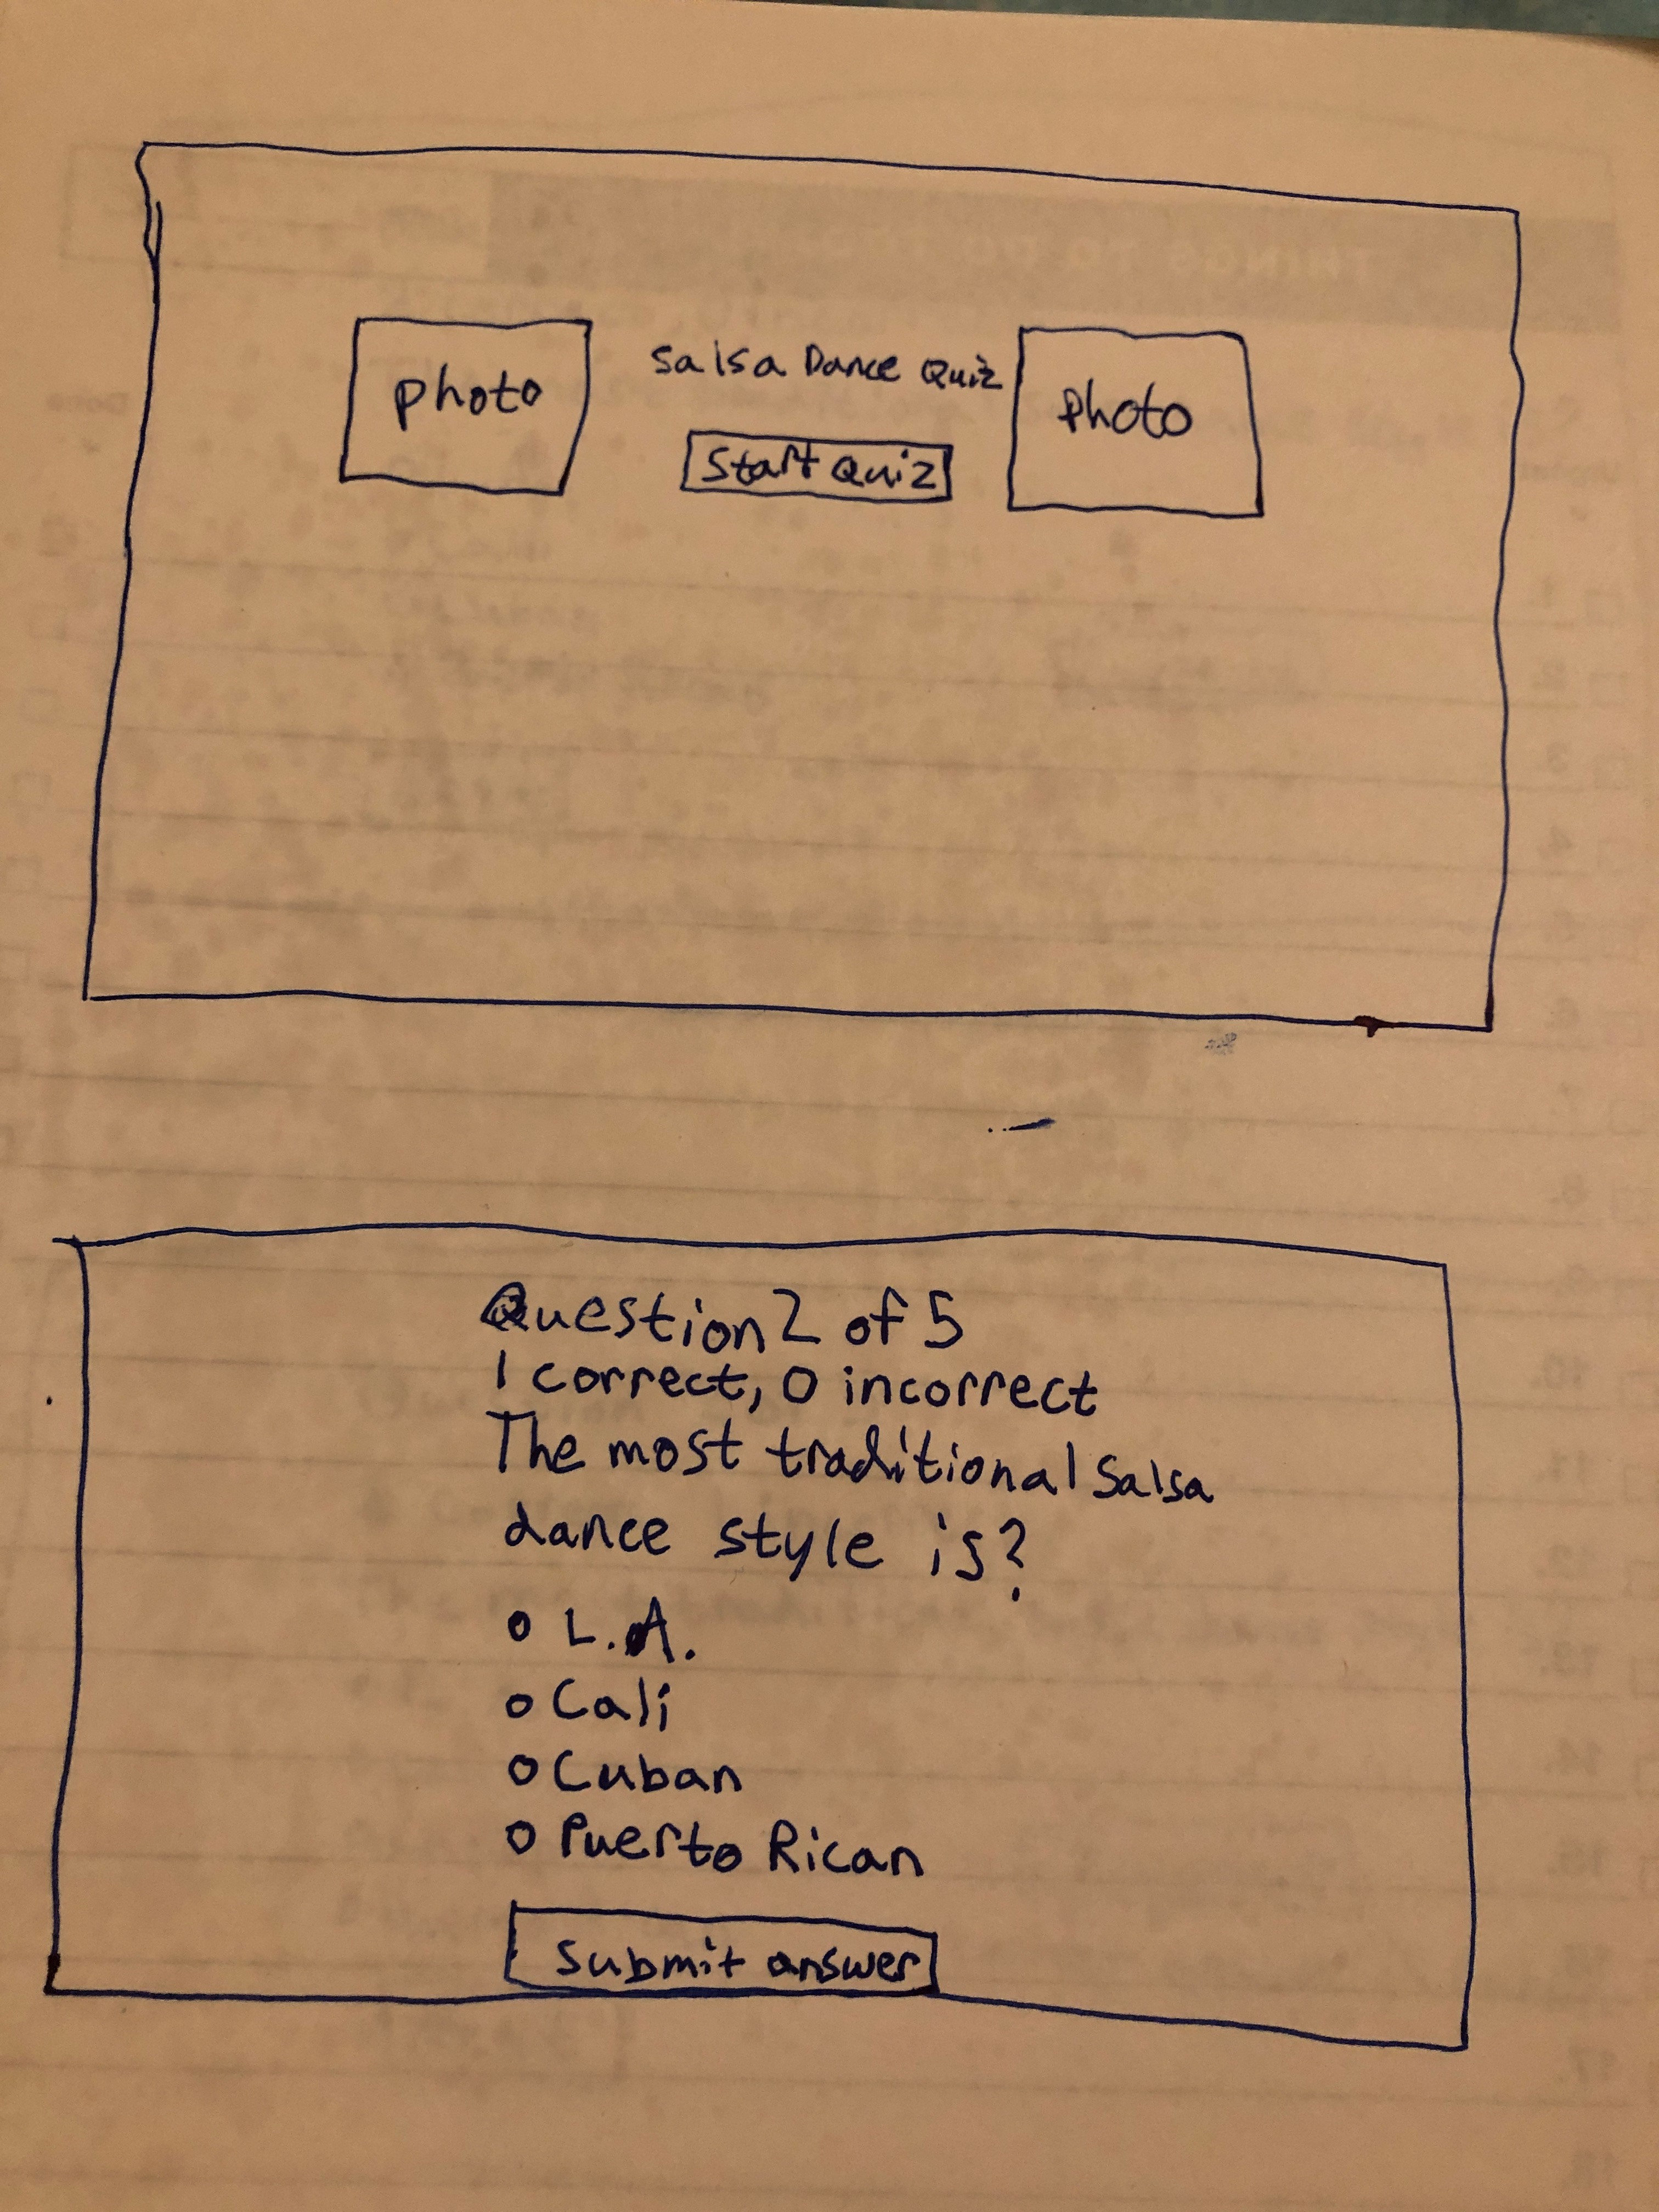 photo
Salsa Dance Quiz
photo
Start Quiz
Question 2 of 5
1 correct, 0 incorrect
The most traditional Salsa
dance style is?
L.A.
Cali
Cuban
Puerto Rican
submit answer